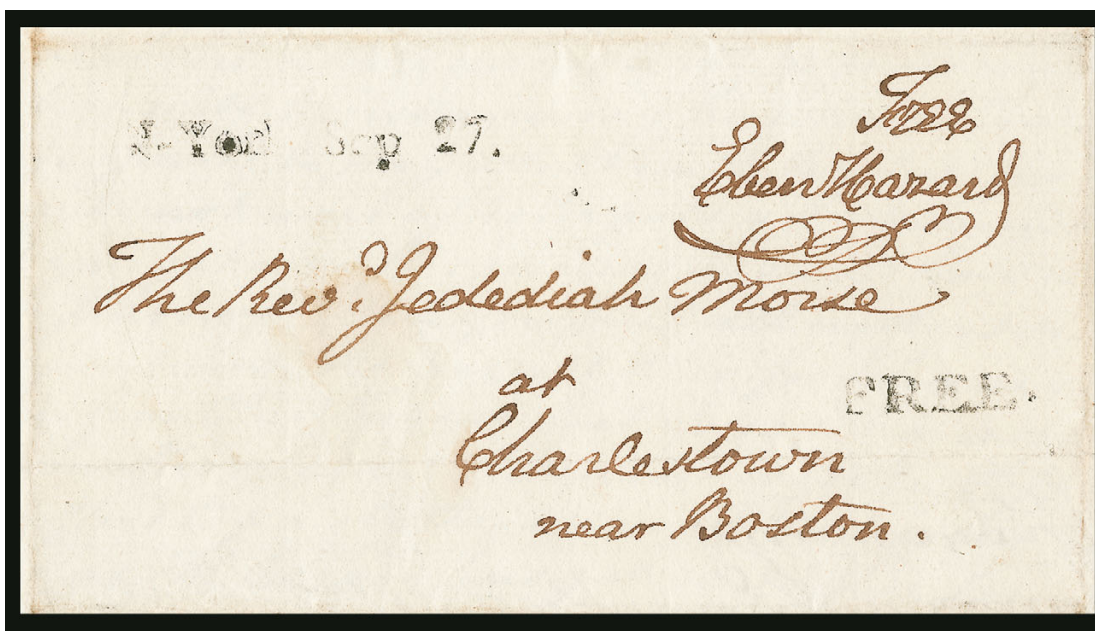 N-York Sep 27.
Free
Eben Hazard
The Revd. Jedediah Morse
at
FREE.
Charlestown
near Boston.